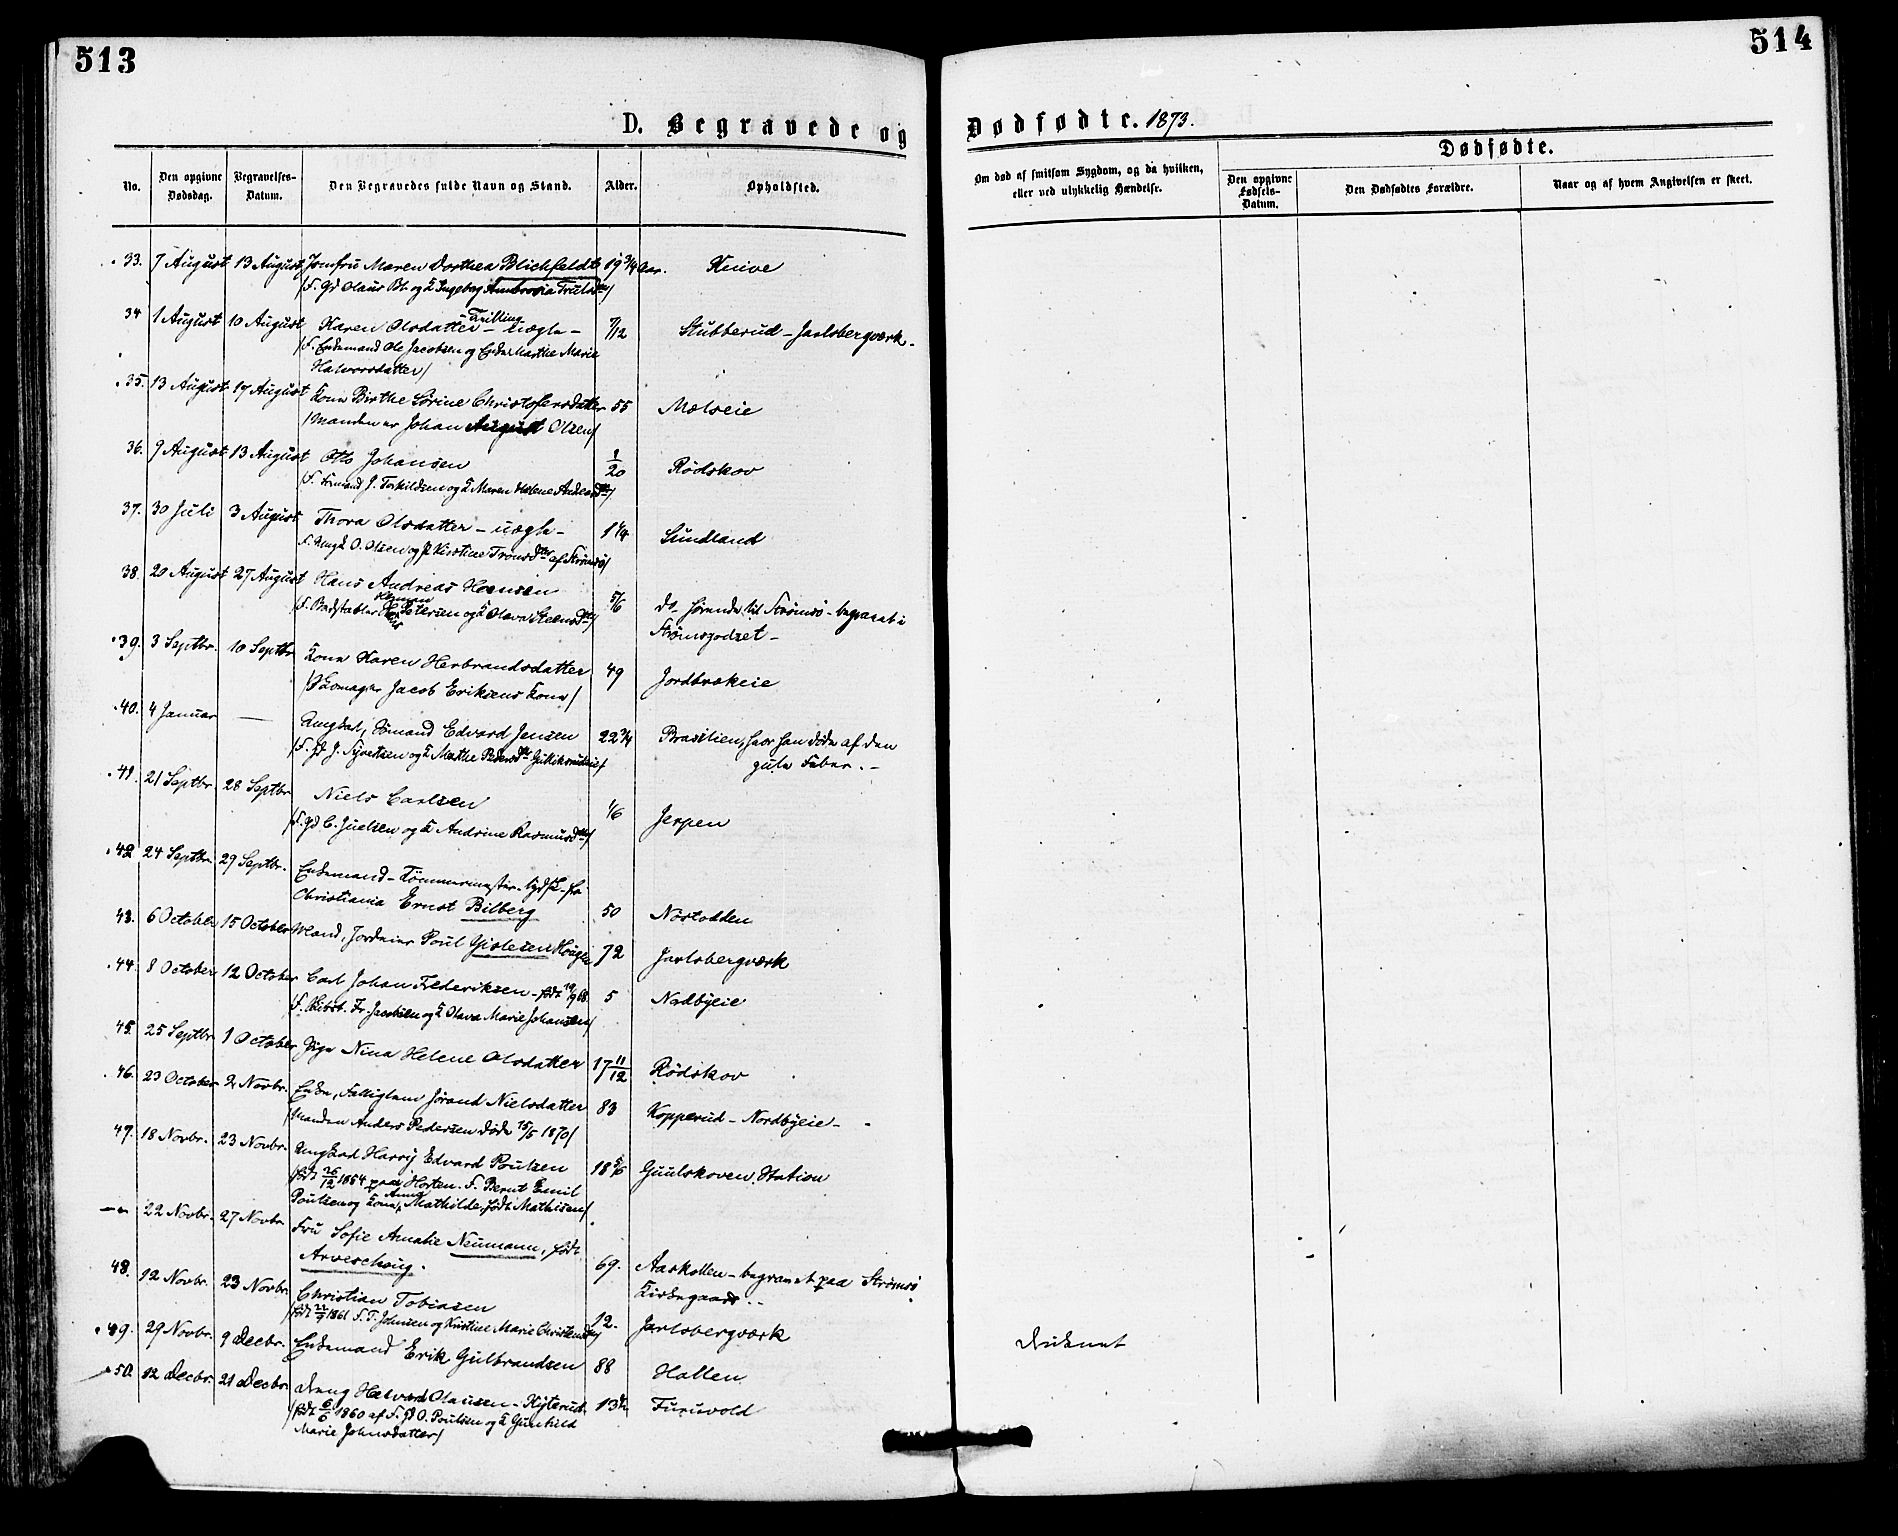 513
514
D. Begravede og
Dødfødte. 1873.
No.
Den opgivne Dødsdag.
Begravelses-Datum.
Den Begravedes fulde Navn og Stand.
Alder.
Opholdsted.
Om død af smitsom Sygdom, og da hvilken, eller ved ulykkelig Hændelse.
Dødfødte.
Den opgivne Fødsels-Datum.
Den Dødfødtes Forældre.
Naar og af hvem Angivelsen er skeet.
33. 7 August 13 August Jomfru Maren Dorthea Blichfeldt 19 3/4 Aar. Knive
/F. Gd Olaus Bl. og K Ingebog Ambrosia Trulsdtr/
34 1 August 10 August Karen Olsdatter - Trilling - uægte - 7/12 Stubberud - Jarlsbergværk -
/F. Enkemand Ole Jacobsen og Enke Marthe Marie
Halvorsdatter/
35. 13 August 17 August Kone Birthe Sørine Christofersdatter 55 Mælseie
/Manden er Johan August Olsen/
36. 9 August 13 August Otto Johansen 1/20 Rødskov
/F. Formand J. Torkildsen og K Maren Helene Andersdtr/
37. 30 Juli 3 August Thora Olsdatter - uægte - 1 1/4 Sundland
F. Ungk O. Olsen og P Kirstine Tronsdtr af Strømsø/
38. 20 August 27 August Hans Andreas Hansen 5/6 do - hørende til Strømsø - begravet i
/F. Petersen og K Olava Steensdtr/ Strømsgodset -
39. 3 Septbr. 10 Septbr Kone Karen Herbrandsdatter 49 Jordbrækeie
/Skomager Jacob Eriksens Kone/
40. 4 Januar — Ungkarl, Sømand Edvard Jensen 22 3/4 Brasilien, hvor han døde af den
/F. Gd J. Syvertsen og K Marthe Pedersdtr gule Feber. -
41. 21 Septbr 28 Septbr Niels Carlsen 1/6 Jerpen
/F. Gd C. Juelsen og K Andrine Rasmusdtr/
42 24 Septbr. 29 Septbr. Enkemand - Tømmermester - fra
Christiania Ernst Bilberg 50 Nøstodden
43. 6 October 15 October Mand, Jordeier Poul Gislesen Hougen 72 Jarlsbergværk
44. 8 October 12 October Carl Johan Frederiksen - født 19/9 68. 5 Nordbyeie
/F. Fr. Jacobsen og K Olava Marie Johansen/
45. 25 Septbr 1 October Pige Nina Helene Olsdatter 17 11/12 Rødskov
46. 23 October 2 Novbr. Enke, Fattiglem Jørand Nielsdatter 83 Kopperud - Nordbyeie -
/Manden Anders Pedersen døde 15/5 1870/
47. 18 Novbr. 23 Novbr. Ungkarl Harry Edvard Poulsen 18 5/6 Guulskoven Station
/født 26/12 1854 paa Horten. F. Bernt Emil
Poulsen og Kone, Anna Mathilde, født Mathisen/
— 22 Novbr. 27 Novbr. Fru Sofie Amalie Neumann, født
Arveschoug. 69. Aaskollen - begravet paa Strømsø
Kirkegaard. -
48. 12 Novbr. 23 Novbr. Christian Tobiasen 12. Jarlsbergværk
/født 22/9 1861 F. T. Johnsen og Kristine Marie Christensdtr/
49. 29 Novbr. 9 Decbr. Enkemand Erik Gulbrandsen 88 Hallen Druknet
50. 12 Decbr. 21 Decbr. Dreng Halvard Olausen - Kjiterud 13 1/2 Furuvold
/født 6/6 1860 af F. Gd O. Poulsen og K Gunhild
Marie Johnsdatter/